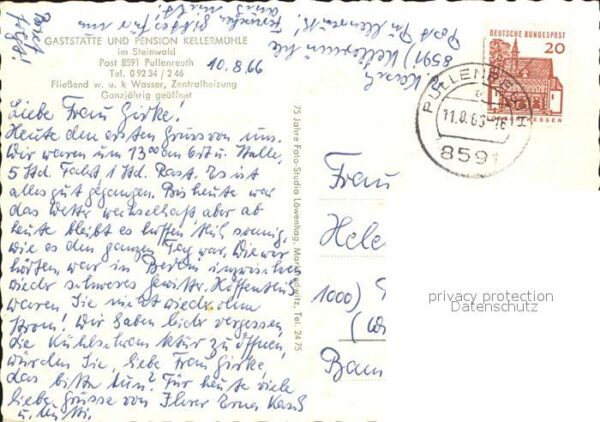 GASTSTÄTTE UND PENSION KELLERMÜHLE
im Steinwald
Post 8591 Pullenreuth
Tel. 0 92 34 / 2 46
Fließend w. u. k Wasser, Zentralheizung
Ganzjährig geöffnet
10.8.66
Liebe Frau Girke.
Heute den ersten Gruss von uns.
Wir waren um 13⁰⁰ am Stelle,
5 Std. Fahrt 1 Std. Rast. Es ist
alles gut gegangen. Bis heute war
das Wetter wechselhaft aber ab
heute bleibt es hoffentlich sonnig,
wie es den ganzen Tag war. Wie wir
hörten, war in Berlin inzwischen
wieder schweres Gewitter. Hoffentlich
waren Sie nicht wieder ohne
Strom! Wir haben leider vergessen,
die Kühlschranktür zu öffnen,
würden Sie, liebe Frau Girke,
das bitte tun? Für heute viele
liebe Grüsse von Ihrer Erna Kasch
u. Mutti.
Kasch
8591) Kellermühle
Post Pullenreuth
75 Jahre Foto-Studio Löwenhag, Marktredwitz, Tel. 2475
DEUTSCHE BUNDESPOST
20
PULLENREUTH
11.8.66-16
8591
Frau
Hele
1000)
Bam
privacy protection
Datenschutz